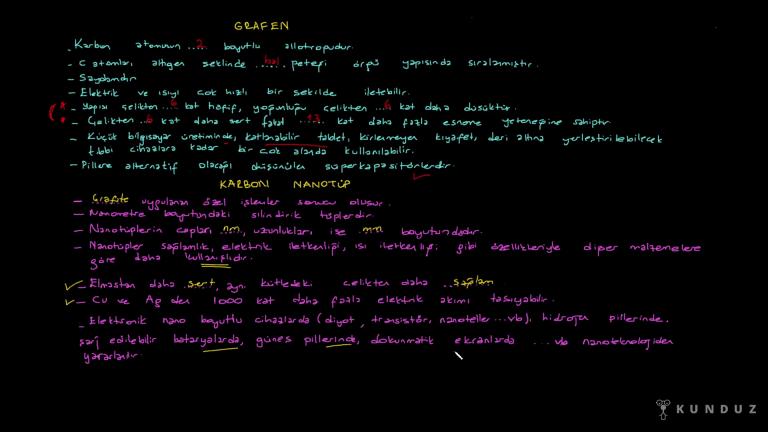 GRAFEN
- Karbon atomunun ..2.. boyutlu allotropudur.
- C atomları altıgen şeklinde ..bal.. peteği örgü yapısında sıralanmıştır.
- Saydamdır
- Elektrik ve ısıyı çok hızlı bir şekilde iletebilir.
- Yapısı çelikten ..6 kat hafif, yoğunluğu çelikten ..6 kat daha düşüktür.
- Çelikten ..6 kat daha sert fakat ..13.. kat daha fazla esneme yeteneğine sahiptir.
- Küçük bilgisayar üretiminde, katlanabilir tablet, kirlenmeyen kıyafet, deri altına yerleştirilebilecek
tıbbi cihazlara kadar bir çok alanda kullanılabilir.
- Pillere alternatif olacağı düşünülen süperkapasitörlerdir.
KARBON NANOTÜP
- Grafite uygulanan özel işlemler sonucu oluşur.
- Nanometre boyutundaki silindirik tüplerdir.
- Nanotüplerin çapları ..nm.., uzunlukları ise ..mm boyutundadır.
- Nanotüpler sağlamlık, elektrik iletkenliği, ısı iletkenliği gibi özellikleriyle diğer malzemelere
göre daha kullanışlıdır.
- Elmastan daha ..sert, aynı kütledeki çelikten daha ..sağlam
- Cu ve Ag den 1000 kat daha fazla elektrik akımı taşıyabilir.
- Elektronik nano boyutlu cihazlarda (diyot, transistör, nanoteller ...vb), hidrojen pillerinde,
şarj edilebilir bataryalarda, güneş pillerinde, dokunmatik ekranlarda ... vb nanoteknolojiden
yararlanılır.
KUNDUZ